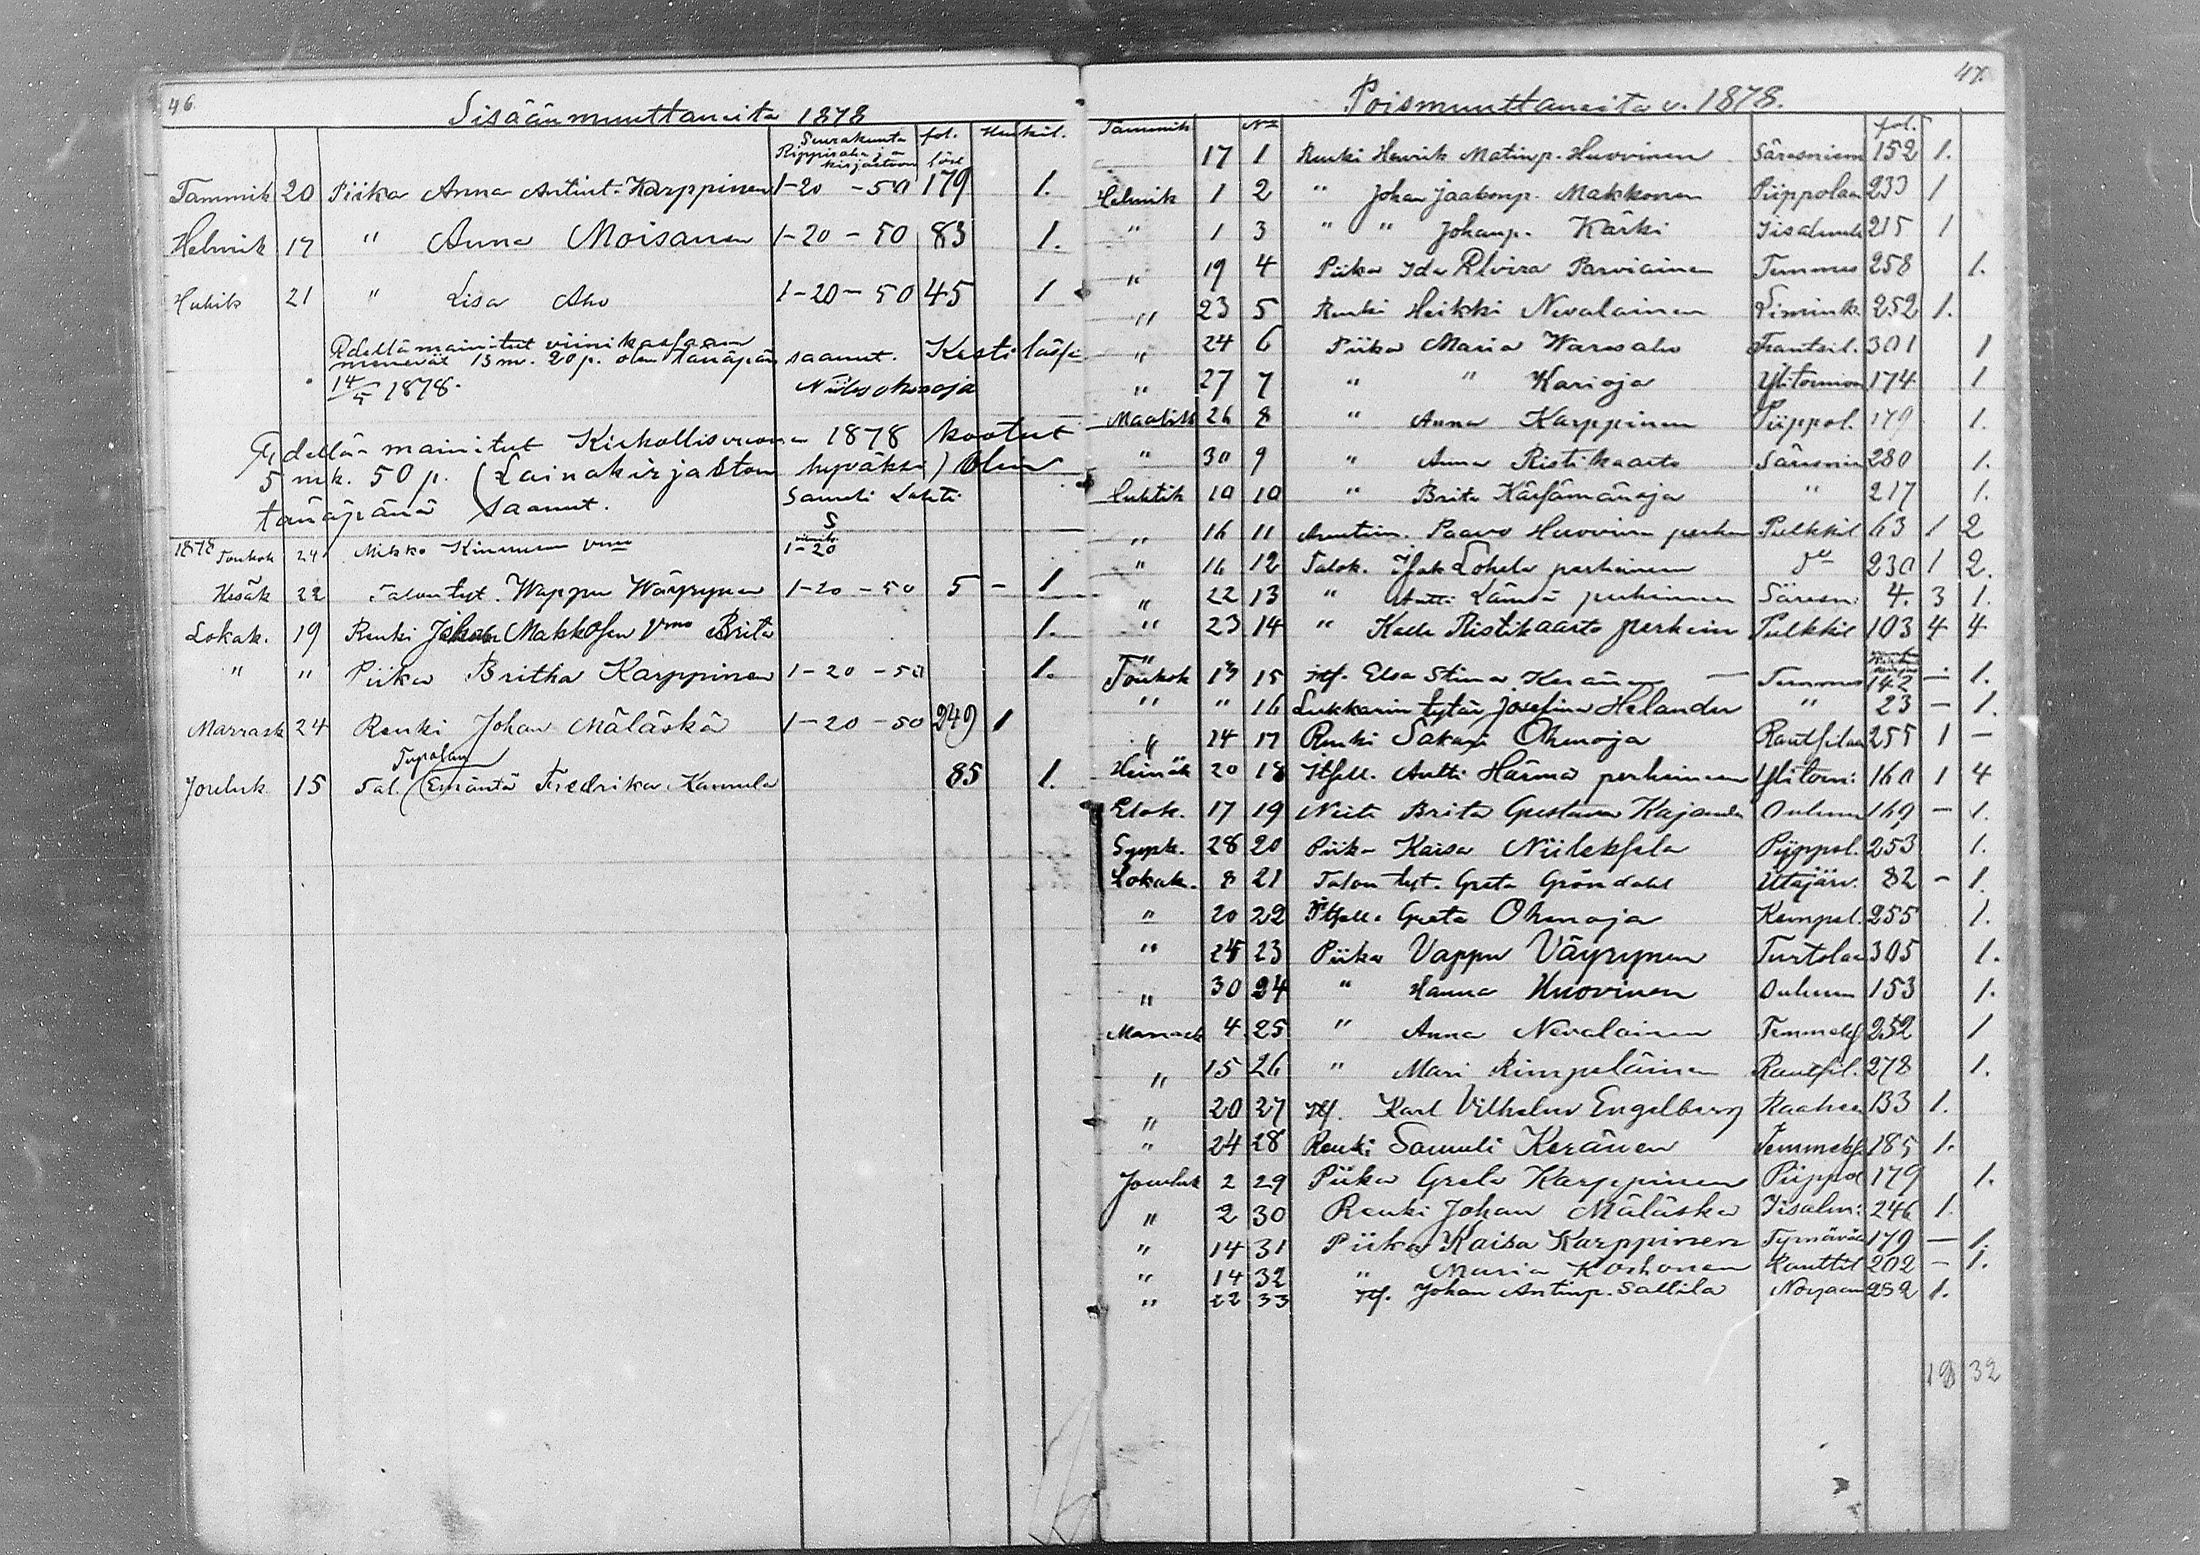 46.
Sisäänmuuttaneita 1878
Seurakunta fol. Henkil.
Rippiraha ja kirjastoon
Tammik 20 Piika Anna Antint. Karppinen 1-20 -50 179 1.
Helmik 17 " Anna Moisanen 1-20 - 50 83 1.
Huhtik 21 " Lisa Aho 1-20 - 50 45 1
Edellämainitut viinikassaan
menevät 13 m. 20 p. olen tänäpän saanut. Kestilässä
14/5 1878. Niilo Ohenoja
Edellä mainitut Kirkollisvuonna 1878 kootut
5 mk. 50 p. (Lainakirjaston hyväksi) olen
tänäpänä saanut. Samuli Lahti
1878 Toukok 24 Mikko Kinnunen vmo 1-20
Kesäk 22 Talontyt. Wappu Wäyrynen 1-20 - 50 5 - 1
Lokak. 19 Renki Johan Makkosen Vmo Brita 1.
" " Piika Britha Karppinen 1-20 - 50 1.
Marrask 24 Renki Johan Mäläskä 1-20 - 50 249 1
Jouluk. 15 Tal. Emäntä Fredrika Kannula 85 1.
47.
Poismuuttaneita v. 1878.
Tammik No fol.
17 1 Renki Henrik Matinp. Huovinen Säresniem 152 1.
Helmik 1 2 " Johan Jaakonp. Makkonen Piippolaan 233 1
" 1 3 " " Johanp. Kärki Iisalmeh 215 1
" 19 4 Piika Ida Elvira Parviainen Temmes 258 1.
" 23 5 Renki Heikki Nevalainen Limink. 252 1.
" 24 6 Piika Maria Waresaho Frantsil. 301 1
" 27 7 " " Karioja Ylitornion 174 1
Maalisk 26 8 " Anna Karppinen Piippol. 179 1.
" 30 9 " Anna Ristikaarto Säresnie 280 1.
Huhtik 10 10 " Brita Kärsämänoja " 217 1.
" 16 11 Paavo Huovinen perhe Pulkkil 63 1 2
" 16 12 Talok. Isak Lohela perheineen do 230 1 2.
" 22 13 " Antti Lämsä perheineen Säresn: 4. 3 1.
" 23 14 " Kalle Ristikaarto perhein Pulkkil 103 4 4
Toukok 15 Itf. Elsa Stina Keränen - Temmes 142 - 1.
" " 16 Lukkarin tytär Josefina Helander " 23 - 1.
" 24 17 Renki Sakari Ohenoja Rantsilaan 255 1 -
Heinäk 20 18 Itsell. Antti Härmä perheineen Ylitorn: 160 1 4
Elok. 17 19 Neiti Brita Gustava Kajander Ouluun 169 - 1.
Syysk. 28 20 Piika Kaisa Niilekselä Piippol. 253 1.
Lokak. 8 21 Talon tyt. Greta Gröndahl Utajärv. 82 - 1.
" 20 22 Itsell. Greta Ohenoja Kempel. 255 1.
" 24 23 Piika Vappu Väyrynen Turtolaan 305 1.
" 30 24 " Hanna Huovinen Ouluun 153 1.
Marrask 4 25 " Anna Nevalainen Temmeks 252 1
" 15 26 " Mari Rimpeläinen Rantsil. 278 1.
" 20 27 Itf. Karl Vilhelm Engelberg Raahee 133 1.
" 24 28 Renki Samuli Keränen Temmeks 185 1.
Jouluk 2 29 Piika Greta Karppinen Piippol 179 1.
" 2 30 Renki Johan Mäläskä Iisalm: 246 1.
" 14 31 Piika Kaisa Karppinen Tyrnävää 179 - 1.
" 14 32 " Maria Korhonen Ranttil 202 - 1.
" 22 33 Itf. Johan Antinp. Sallila Norjaan 252 1.
19 32